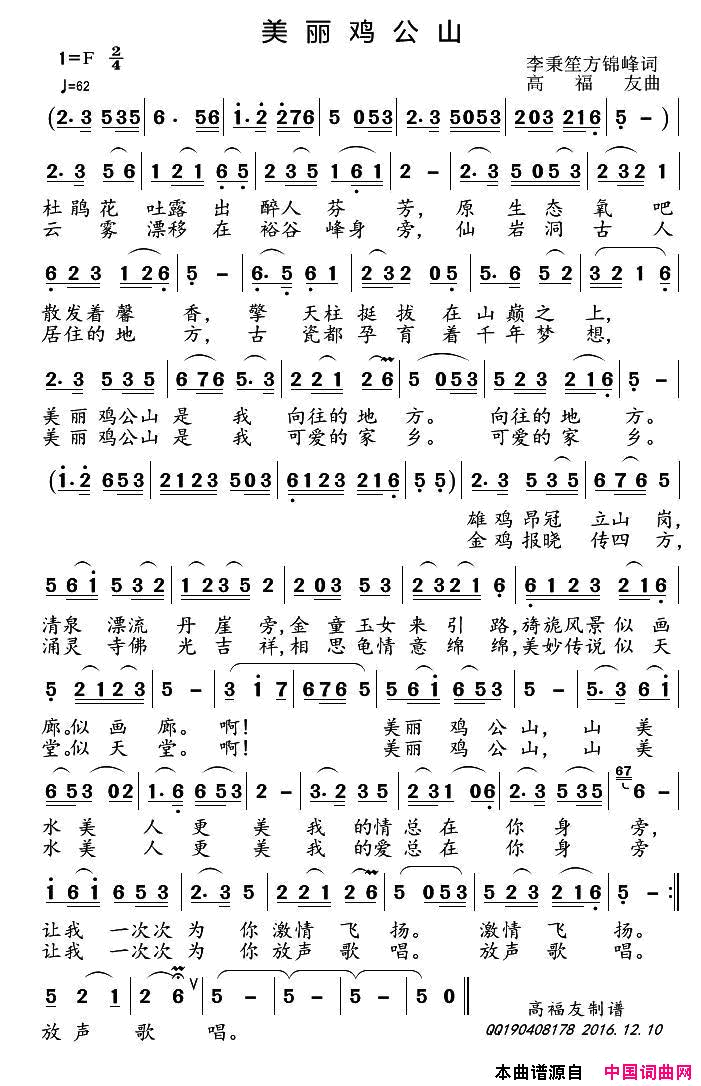 美丽鸡公山
1=F 2/4
李秉笙方锦峰词
♩=62
高福友曲
(2. 3 535 | 6 . 56 | 1. 2 276 | 5 053 | 2. 3 5053 | 203 216 | 5 - )
2. 3 5 6 | 1 2 1 6 5 | 2 3 5 1 6 1 | 2 - | 2. 3 5 0 5 3 | 2 3 2 1
杜鹃花 吐露 出 醉人 芬 芳, 原 生 态 氧 吧
云 雾 漂移 在 裕谷 峰身 旁, 仙 岩 洞 古 人
6 2 3 1 2 6 | 5 - | 6. 5 6 1 | 2 3 2 0 5 | 5. 6 5 2 | 3 2 1 6
散发着馨 香, 擎 天柱 挺 拔 在 山 巅 之 上,
居住的 地 方, 古 瓷都 孕 育 着 千 年 梦 想,
2. 3 5 3 5 | 6 7 6 5. 3 | 2 2 1 2 6 | 5 0 5 3 | 5 2 3 2 1 6 | 5 -
美 丽 鸡公山 是 我 向往的 地 方。 向往的 地 方。
美 丽 鸡公山 是 我 可爱的 家 乡。 可爱的 家 乡。
(1. 2 653 | 2123 503 | 6123 216 | 5 5) | 2. 3 5 3 5 | 6 7 6 5
雄 鸡 昂冠 立山 岗,
金 鸡 报晓 传四 方,
5 6 1 5 3 2 | 1 2 3 5 2 | 2 0 3 5 3 | 2 3 2 1 6 | 6 1 2 3 2 1 6
清泉 漂流 丹 崖 旁, 金 童 玉女 来 引 路, 旖旎风景 似 画
涌灵 寺佛 光 吉 祥, 相 思 龟情 意 绵 绵, 美妙传说 似 天
5 2 1 2 3 | 5 - | 3 1 7 | 6 7 6 5 | 5 6 1 6 5 3 | 5 - | 5. 3 6 1
廊。似 画 廊。 啊! 美丽 鸡 公 山, 山 美
堂。似 天 堂。 啊! 美丽 鸡 公 山, 山 美
6 5 3 0 2 | 1. 6 6 5 3 | 2 - | 3. 2 3 5 | 2 3 1 0 6 | 2. 3 5 3 5 | 67 6 -
水 美 人 更 美 我 的情 总 在 你 身 旁,
水 美 人 更 美 我 的爱 总 在 你 身 旁
1 6 1 6 5 3 | 2. 3 5 | 2 2 1 2 6 | 5 0 5 3 | 5 2 3 2 1 6 | 5 - :||
让我 一次次 为 你 激情 飞 扬。 激情 飞 扬。
让我 一次次 为 你 放声 歌 唱。 放声 歌 唱。
5 2 1 | 2 6 V | 5 - | 5 - | 5 - | 5 0 ||
高福友制谱
放 声 歌 唱。
QQ190408178 2016.12.10
本曲谱源自 中国词曲网